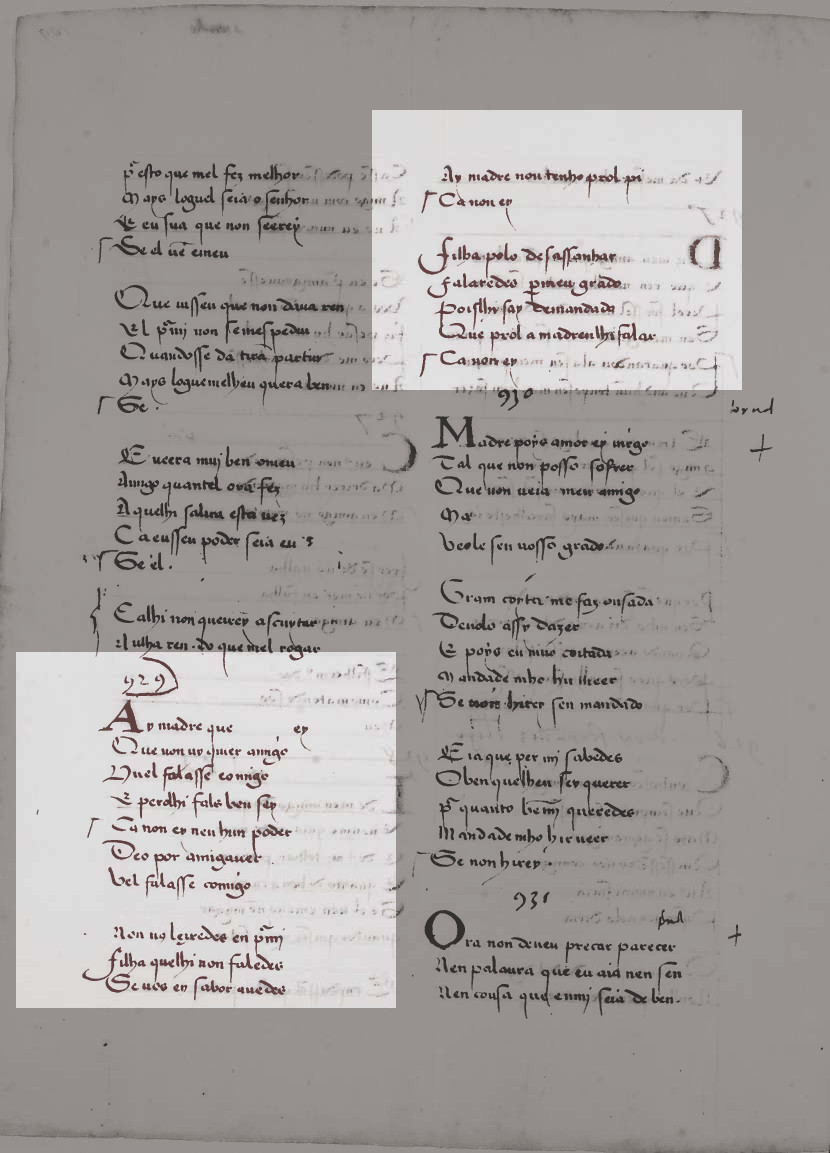 p̃ esto que mel fez melhor
Mays loguel seia o senhor
E eu sua que non seerey
Se el uẽ emeu
Que uisseu que non daua ren
El p̃mj non
Quandosse da partir
Mays loguemelheu quera ben
Se.
E ueera muj ben omeu
Amigo quantel ora fez
A quelhi salua esta uez
Ca eusseu poder seia eu
Se el.
Ealhi non querrey ascuytar
Nulha ren do que mel rogar
929
Ay madre que ey
Que non uy quer amigo
Nuel falasse comigo
E perolhi fals ben sey
Ca non ey nen hun poder
Deo por amigauer
Vel falasse comigo
Non uo leixedes en p̃mj
filha quelhi non faledes
Se uos en sabor auedes
Ay madre non tenho prol pi
Ca non ey
filha polo desassanhar
falaredes per meu grado
Poislhi say demandada
Que prol a madrenlhi falar
Ca non ey
930
Madre poys amor ey migo
Tal que non posso sofrer
Que non ueia meu amigo
Ma
Veole sen uosso grado
Gram coyta me faz ousada
Deuolo assy dazer
E poys eu uiuo coitada
Mandade mho hir ueer
Se non hirey sen mandado
E ia que per mi sabedes
Oben quelheu sey querer
p̃ quanto ben queredes
Mandade mho hir ueer
Se non hirey
931
Ora non deueu precar parecer
Nen palaura que eu aia nen sen
Nen cousa que enmj seia de ben.